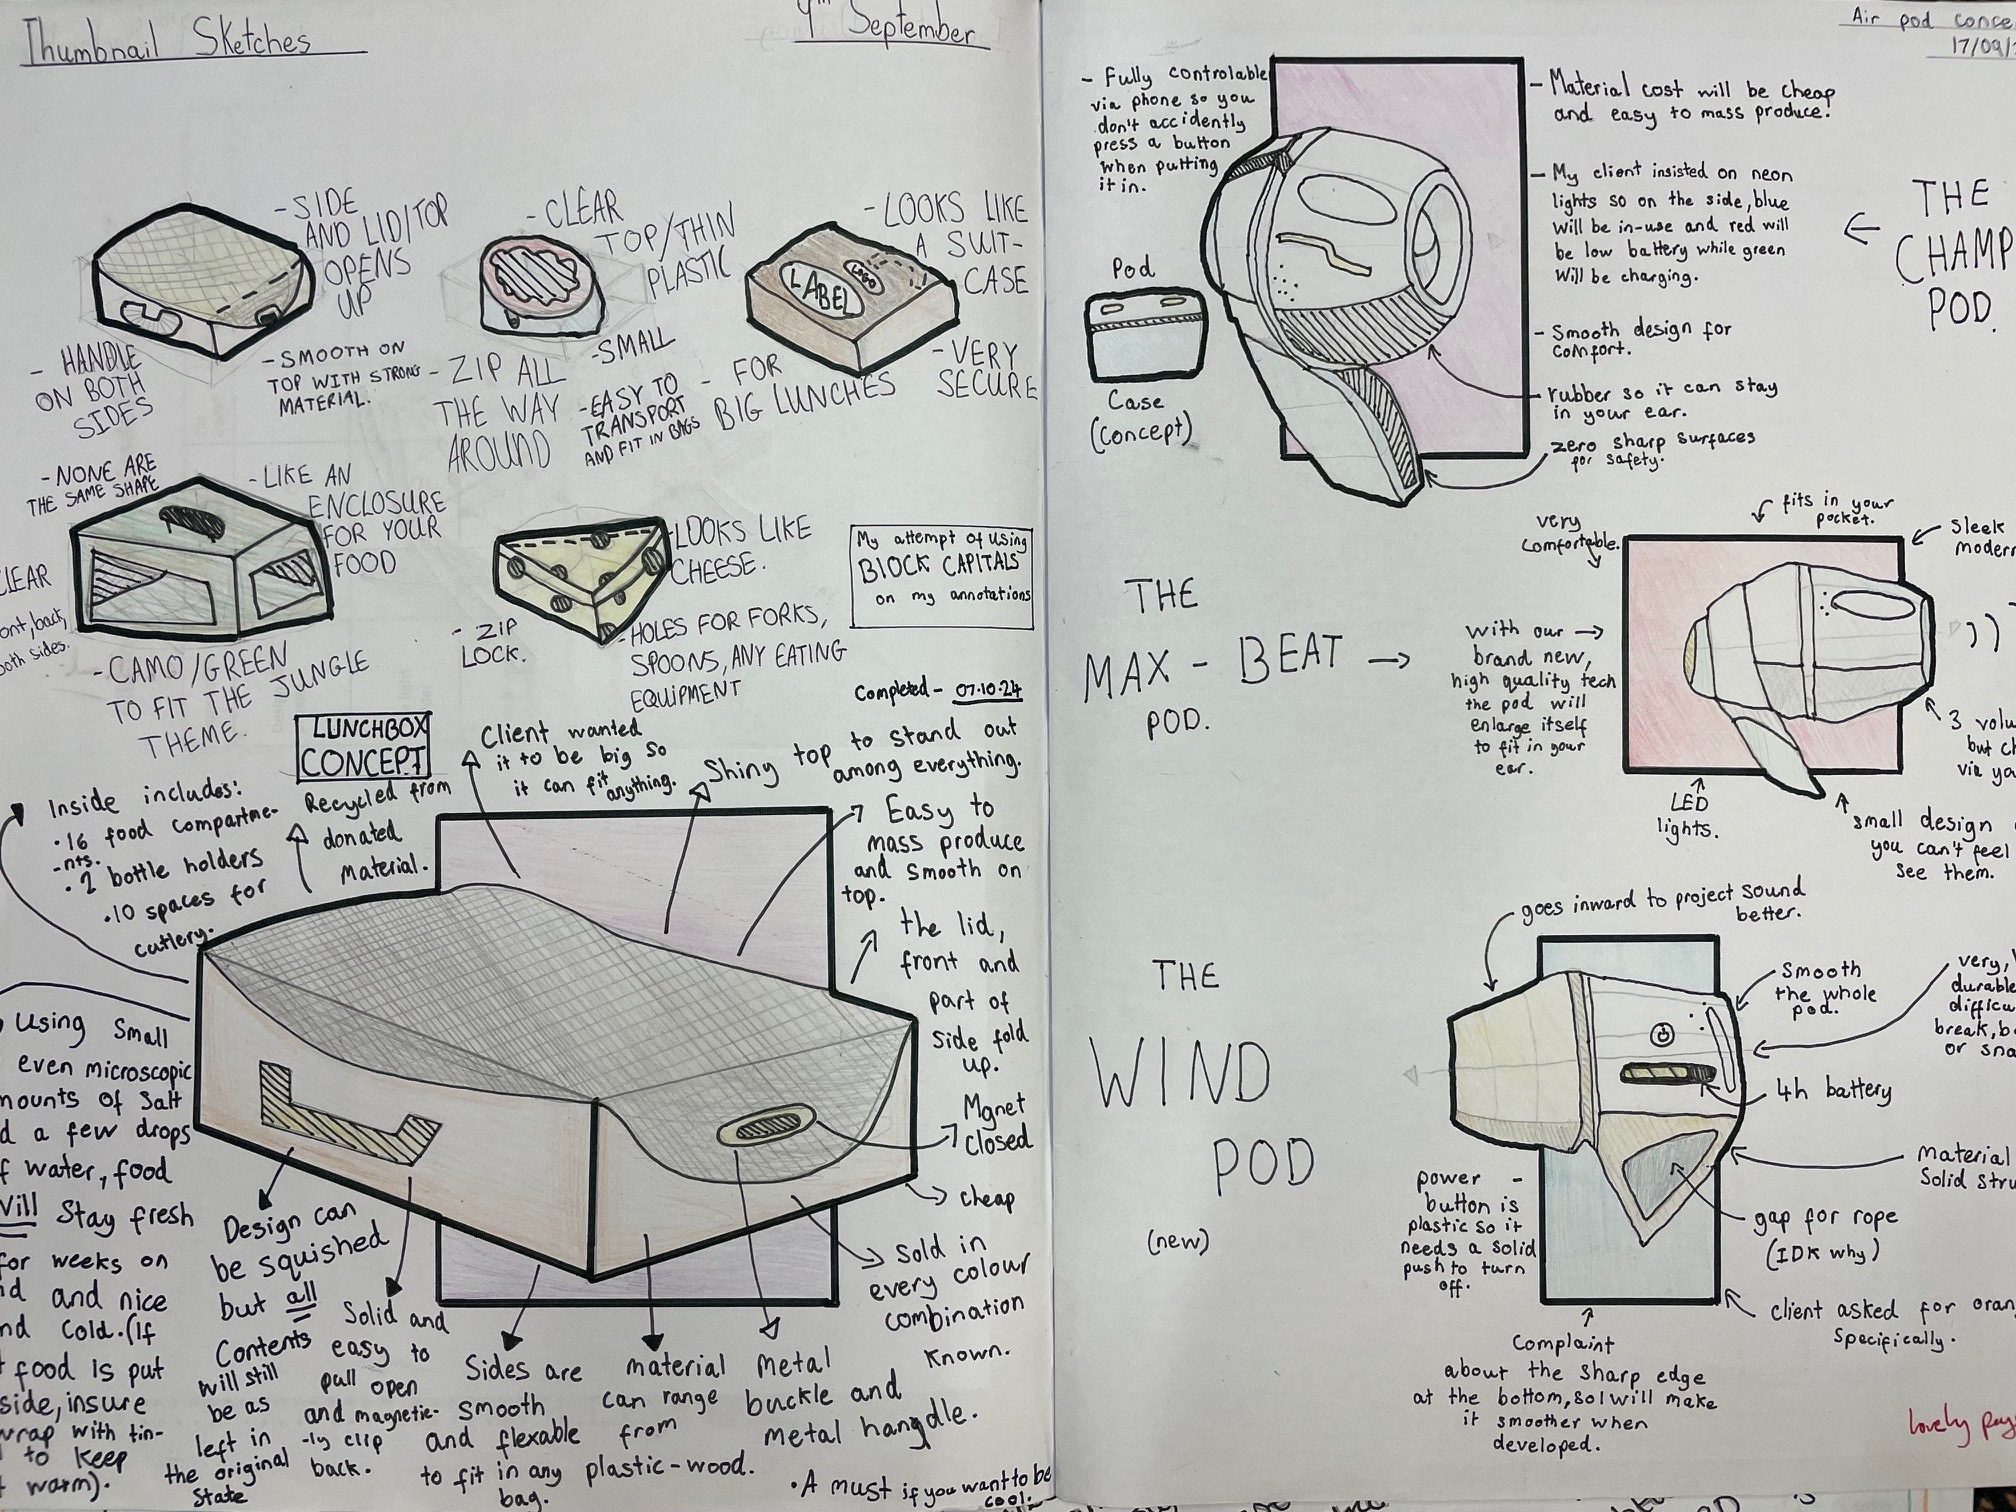 Thumbnail Sketches
9th September
- SIDE
AND LID/TOP
OPENS
UP
- HANDLE
ON BOTH
SIDES
- SMOOTH ON
TOP WITH STRONG
MATERIAL.
- CLEAR
TOP/THIN
PLASTIC
- ZIP ALL
THE WAY
AROUND
- SMALL
- EASY TO
TRANSPORT
AND FIT IN BAGS
LABEL
LOGO
- LOOKS LIKE
A SUIT-
CASE
- FOR
BIG LUNCHES
- VERY
SECURE
- NONE ARE
THE SAME SHAPE
- LIKE AN
ENCLOSURE
FOR YOUR
FOOD
CLEAR
ont, back,
oth sides.
- CAMO/GREEN
TO FIT THE JUNGLE
THEME.
- LOOKS LIKE
CHEESE.
- ZIP
LOCK.
- HOLES FOR FORKS,
SPOONS, ANY EATING
EQUIPMENT
My attempt of using
BlOCK CAPITALS
on my annotations
Completed - 07.10.24
LUNCHBOX
CONCEPT
Inside includes:
· 16 food compartme-
-nts.
· 2 bottle holders
· 10 spaces for
cutlery.
Recycled from
donated
material.
Client wanted
it to be big so
it can fit
anything.
Shiny top to stand out
among everything.
Easy to
mass produce
and smooth on
top.
the lid,
front and
part of
side fold
up.
Mgnet
closed
cheap
Sold in
every colour
combination
known.
Using small
even microscopic
mounts of salt
d a few drops
f water, food
Will stay fresh
for weeks on
nd and nice
nd cold. (If
food is put
side, insure
wrap with tin-
to keep
warm).
Design can
be squished
but all
contents
will still
be as
left in
the original
state
Solid and
easy to
pull open
and magnetic-
-ly clip
back.
Sides are
smooth
and flexable
to fit in any
bag.
material
can range
from
plastic-wood.
Metal
buckle and
metal hangdle.
· A must if you want to be
cool.
Air pod conce
17/09/
- Fully controlable
via phone so you
don't accidently
press a button
when putting
it in.
Pod
Case
(Concept)
- Material cost will be cheap
and easy to mass produce!
- My client insisted on neon
lights so on the side, blue
will be in-use and red will
be low battery while green
will be charging.
- Smooth design for
comfort.
rubber so it can stay
in your ear.
zero sharp surfaces
for safety.
← THE
CHAMP
POD.
THE
MAX - BEAT →
POD.
very
comfortable.
fits in your
pocket.
sleek
modern
with our →
brand new,
high quality tech
the pod will
enlarge itself
to fit in your
ear.
3 volu
but c
via yo
LED
lights.
small design
you can't feel
see them.
THE
WIND
POD
(new)
goes inward to project sound
better.
smooth
the whole
pod.
very,
durable
difficu
break, b
or sna
4h battery
material
Solid stru
gap for rope
(IDK why)
power -
button is
plastic so it
needs a solid
push to turn
off.
client asked for oran
specifically.
Complaint
about the sharp edge
at the bottom, so I will make
it smoother when
developed.
lovely pag